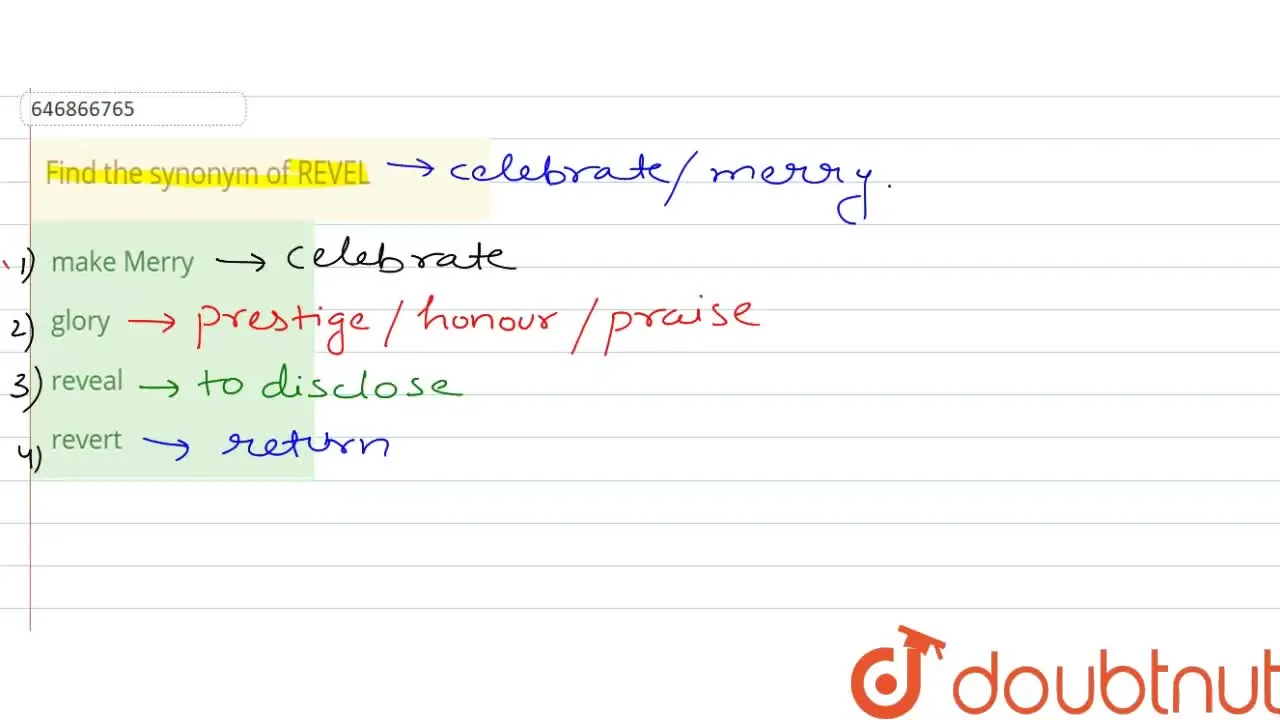 646866765
Find the synonym of REVEL → celebrate/merry.
1) make Merry → celebrate
2) glory → prestige/honour/praise
3) reveal → to disclose
4) revert → return
doubtnut